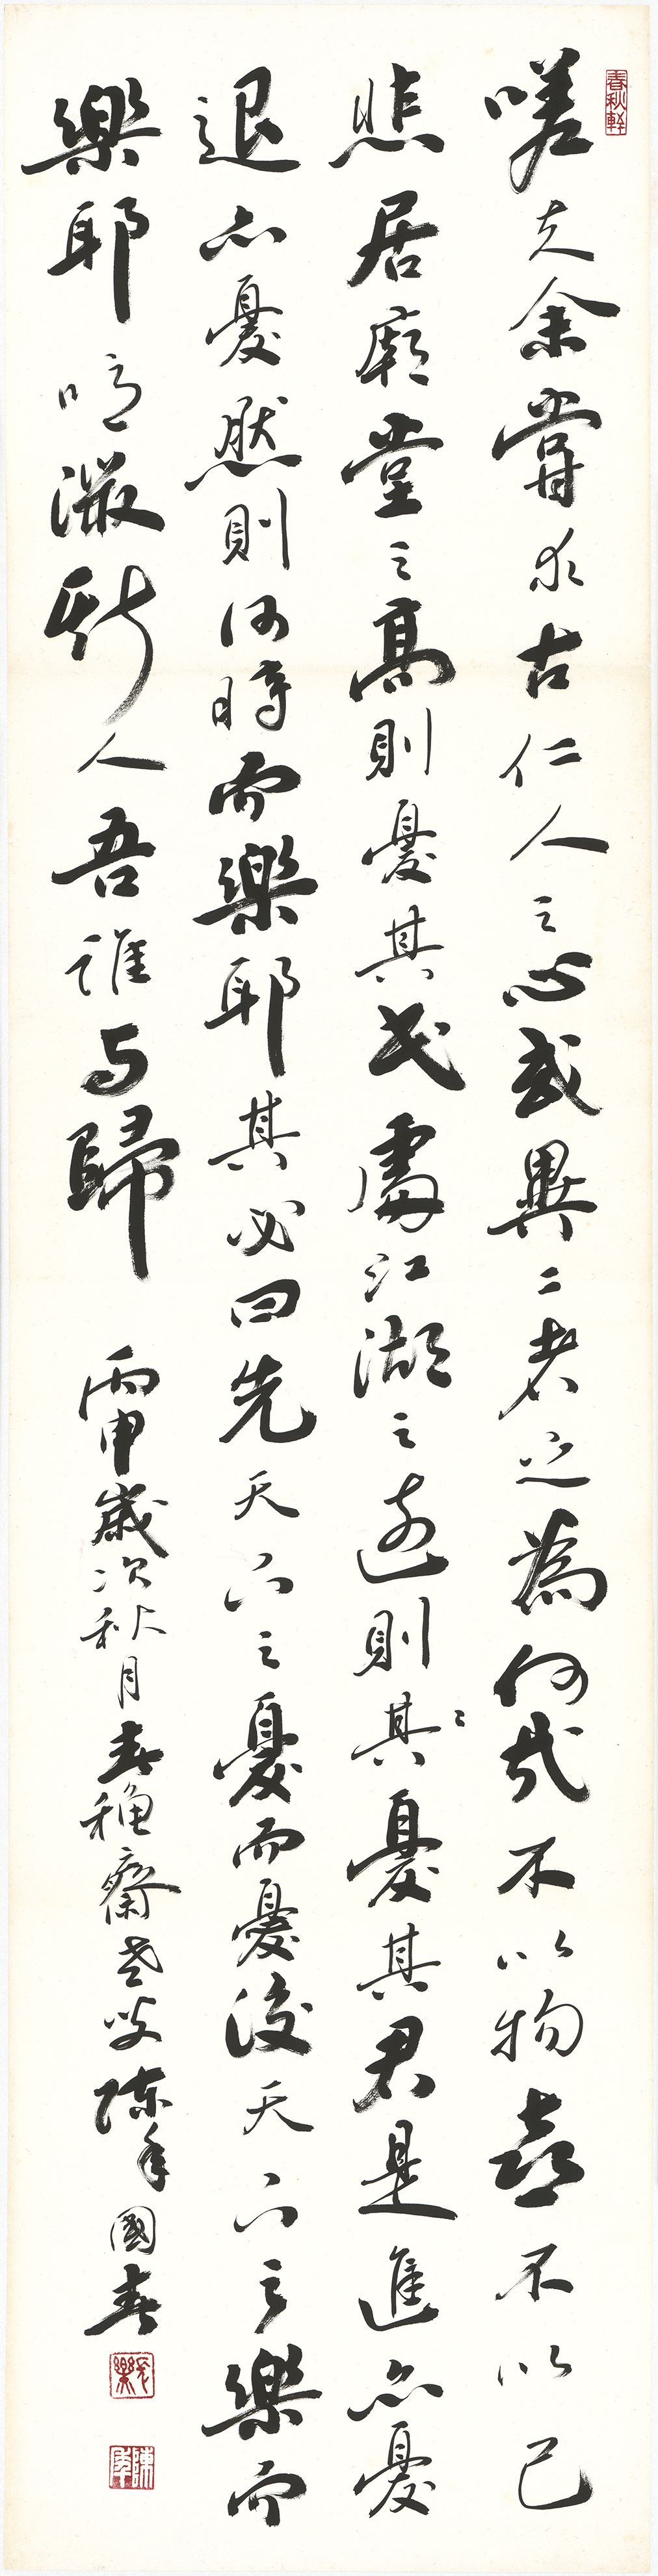 春秋軒
嗟夫余嘗求古仁人之心或異二者之為何哉不以物喜不以己
悲居廟堂之高則憂其民處江湖之遠則其憂其君是進亦憂
退亦憂然則何時而樂耶其必曰先天下之憂而憂後天下之樂而
樂耶噫微斯人吾誰與歸 丙申歲次秋月春穐齋老叟陳國春
長樂